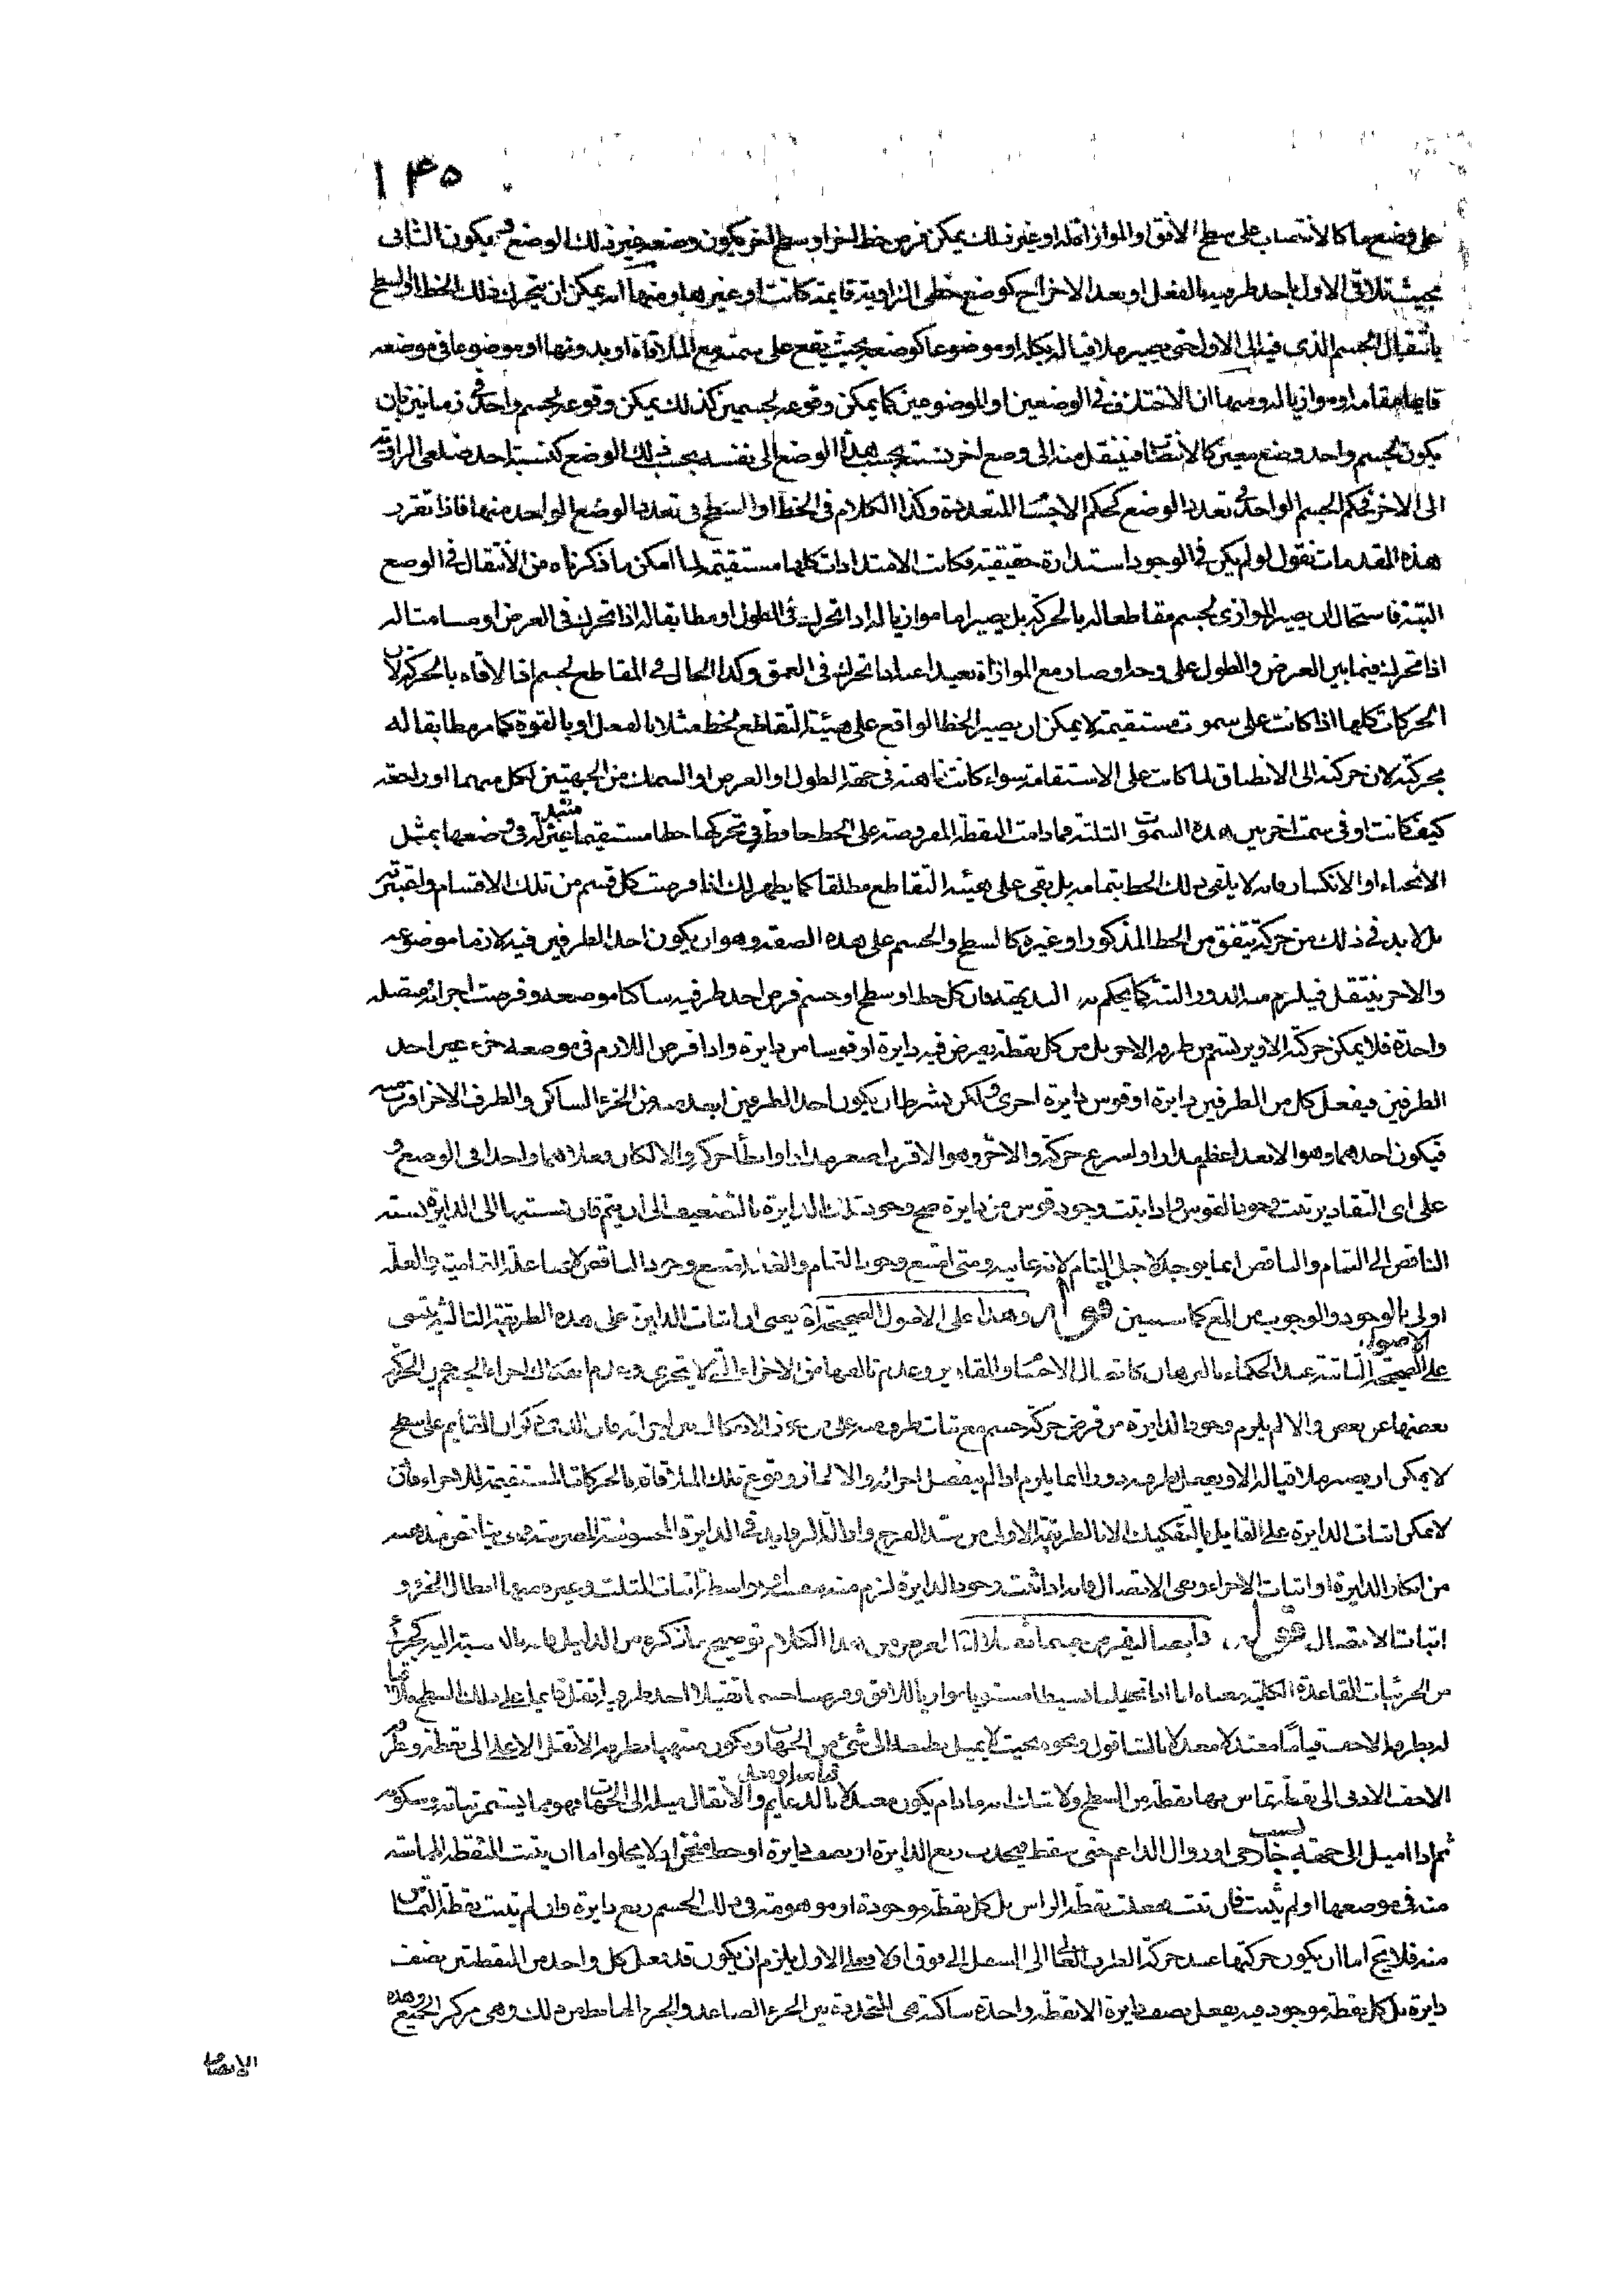 ١٣٥
على وضع ما كالانتصاب على سطح الافق او الموازاة له او غير ذلك يمكن فرض خط اخر او سطح اخر يكون وضعه غير ذلك الوضع و يكون الثانى
بحيث تلاقى الاول باحد طرفيه بالفعل او بعد الاخراج كوضع خطى الزاوية قايمة كانت او غيرها ومنها انه يمكن ان يتحرك ذلك الخط او السطح
بانتقال الجسم الذى فيه الى الاول حتى يصير ملاقيا له بكله او موضوعا كوضعه بحيث يقع على سمته مع الملاقاة او بدونها او موضوعا فى موضعه
قايما مقامه او موازيا له ومنها ان الاختلاف فى الوضعين او الموضوعين كما يمكن وقوعه لجسمين كذلك يمكن وقوعه لجسم واحد فى زمانين بان
يكون لجسم واحد وضع معين كالانتصاب فينتقل منه الى وضع اخر نسبته بحسب هذا الوضع الى نفسه بحسب ذلك الوضع كنسبة احد ضلعى الزاوية
الى الاخر فحكم الجسم الواحد فى تعدد الوضع كحكم الاجسام المتعددة وكذا الكلام فى الخط او السطح فى تعدد الوضع الواحد منها فاذا تقرر
هذه المقدمات نقول لو لم يكن فى الوجود استدارة حقيقية وكانت الامتدادات كلها مستقيمة لما امكن ما ذكرناه من الانتقال فى الوضع
البتة فاستحال ان يصير الموازى لجسم مقاطعا له بالحركة بل يصير اما موازيا له اذا تحرك فى الطول او مطابقا له اذا تحرك فى العرض او مسامتا له
اذا تحرك فيما بين العرض والطول على وحد او صار مع الموازاة بعيدا عنه اذا تحرك فى العمق وكذا الحال فى المقاطع لجسم اذا لاقاه بالحركة لان
الحركات كلها اذا كانت على سموت مستقيمة لا يمكن ان يصير الخط الواقع على هيئة التقاطع لخط مثلا بالفعل او بالقوة كما مر مطابقا له
بحركته لان حركته الى الانطباق لما كانت على الاستقامة سواء كانت ذاهبة فى جهة الطول او العرض او السمك من الجهتين لكل منهما او راجعة
كيف كانت او فى سمت اخر بين هذه السموت الثلثة فما دامت النقطة المفروضة على الخط حافظة فى تحركها خطا مستقيما غير متبدلة فى وضعها بمثل
الانحناء او الانكسار فانه لا يلقى ذلك الخط بتمامه بل بقى على هيئة التقاطع مطلقا كما يظهر لك اذا فرضت كل قسم من تلك الاقسام واعتبرته
بل لا بد فى ذلك من حركة يتفق من الخط المذكور او غيره كالسطح والجسم على هذه الصفة وهو ان يكون احد الطرفين فيه لازما موضوعه
والاخر ينتقل فيلزم منه الدور البتة كما يحكم به البديهة فان كل خط او سطح او جسم فرض احد طرفيه ساكنا موضعه وفرضت اجزائه متصلة
واحدة فلا يمكن حركته الا ويرتسم من طرفه الاخر بل من كل نقطة يفرض فيه دايرة او قوسا من دايرة واذا فرض اللازم فى موضعه جزء غير احد
الطرفين فيفعل كل من الطرفين دايرة او قوس دايرة اخرى ولكن بشرط ان يكون احد الطرفين ابعد من الجزء الساكن والطرف الاخر اقرب منه
فيكون احدهما وهو الابعد اعظم مدارا واسرع حركة والاخر وهو الاقرب اصغر مدارا وابطأ حركة والا لكان فعلاهما واحدا فى الوضع و
على اى التقادير ثبت وجود القوس واذا ثبت وجود قوس من دايرة صح وجود تلك الدايرة بالتضعيف الى ان يتم فان نسبتها الى الدايرة نسبة
الناقص الى التمام والناقص انما يوجد لاجل التمام لانه غايته ومتى امتنع وجود التمام والغاية امتنع وجود الناقص لانهما علة التمامية والعلة
اولى بالوجود والوجوب من المع كما سيبين قوله وهذا على الاصول الصحيحة اه يعنى ان اثبات الدايرة على هذه الطريقة الثالثة يبتنى
على الاصول الصحيحة الثابتة عند الحكماء بالبرهان كاتصال الاجسام والمقادير وعدم تالفها من الاجزاء التى لا يتجزى وعدم انفكاك اجزاء الجسم حين الحركة
بعضها عن بعض والا لم يلزم وجود الدايرة من فرض حركة جسم مع ثبات طرف منه
لا يمكن ان يصير ملاقيا له الا ويفعل طرفه دورا انما يلزم اذا لم ينفصل اجزائه والا لجاز وقوع تلك الملاقاة بالحركات المستقيمة للاجزاء فاذن
لا يمكن اثبات الدايرة على القايل بالتفكيك الا بالطريقة الاولى من سد الفرج وازالة الزوايد فى الدايرة المحسوسة المضرسة حتى يناقض مذهبه
من انكار الدايرة او اثبات الاجزاء ونفى الاتصال فانه اذا ثبت وجود الدايرة لزم منه بواسطة اثبات المثلث وغيره منها ابطال الجزء و
اثبات الاتصال قوله وايضا لنفرض جسما ثقيلا اه الغرض من هذا الكلام توضيح ما ذكره من الدليل فانه بالنسبة اليه كجزئى
من الجزئيات للقاعدة الكلية معناه انا اذا تخيلنا بسيطا مستويا موازيا للافق وفرضنا جسما ثقيلا احد طرفيه اثقل قايما على ذلك السطح مماسا
له بطرفه الاخف قياما معتدلا معدلا بالشاقول ونحوه بحيث لا يميل بطبعه الى شئ من الجهات ويكون منتهيا بطرفه الاثقل الاعلى الى نقطة وطرفه
الاخف الادنى الى نقطة تماس بها نقطة من السطح ولا شك انه ما دام يكون معدلا بالدعايم والاثقال ميله الى الجهات فهو مما يستمر ثباته وسكونه
ثم اذا اميل الى جهة لسبب خارجى او زوال الداعم حتى سقط فيحدث ربع الدايرة او نصف دايرة او خط منحن اذ لا يخلو اما ان يثبت النقطة المماسة
منه فى موضعها او لم يثبت فان ثبت فعلت نقطة الراس بل كل نقطة موجودة او موهومة فى ذلك الجسم ربع دايرة وان لم يثبت نقطة التماس
منه فلا يخ اما ان يكون حركتها عند حركة الطرف العالى الى السفل الى فوق او لا فعلى الاول يلزم ان يكون قد فعل كل واحد من النقطتين نصف
دايرة بل كل نقطة موجود فيه يفعل نصف دايرة الا نقطة واحدة ساكنة هى المتحددة بين الجزء الصاعد والجزء الهابط من ذلك وهى مركز الجميع وهذه